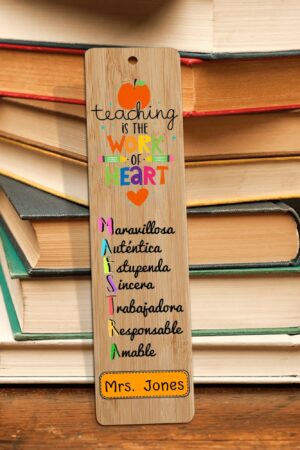 teaching
IS THE
WORK
OF
HEART
Maravillosa
Auténtica
Estupenda
Sincera
Trabajadora
Responsable
Amable
Mrs. Jones